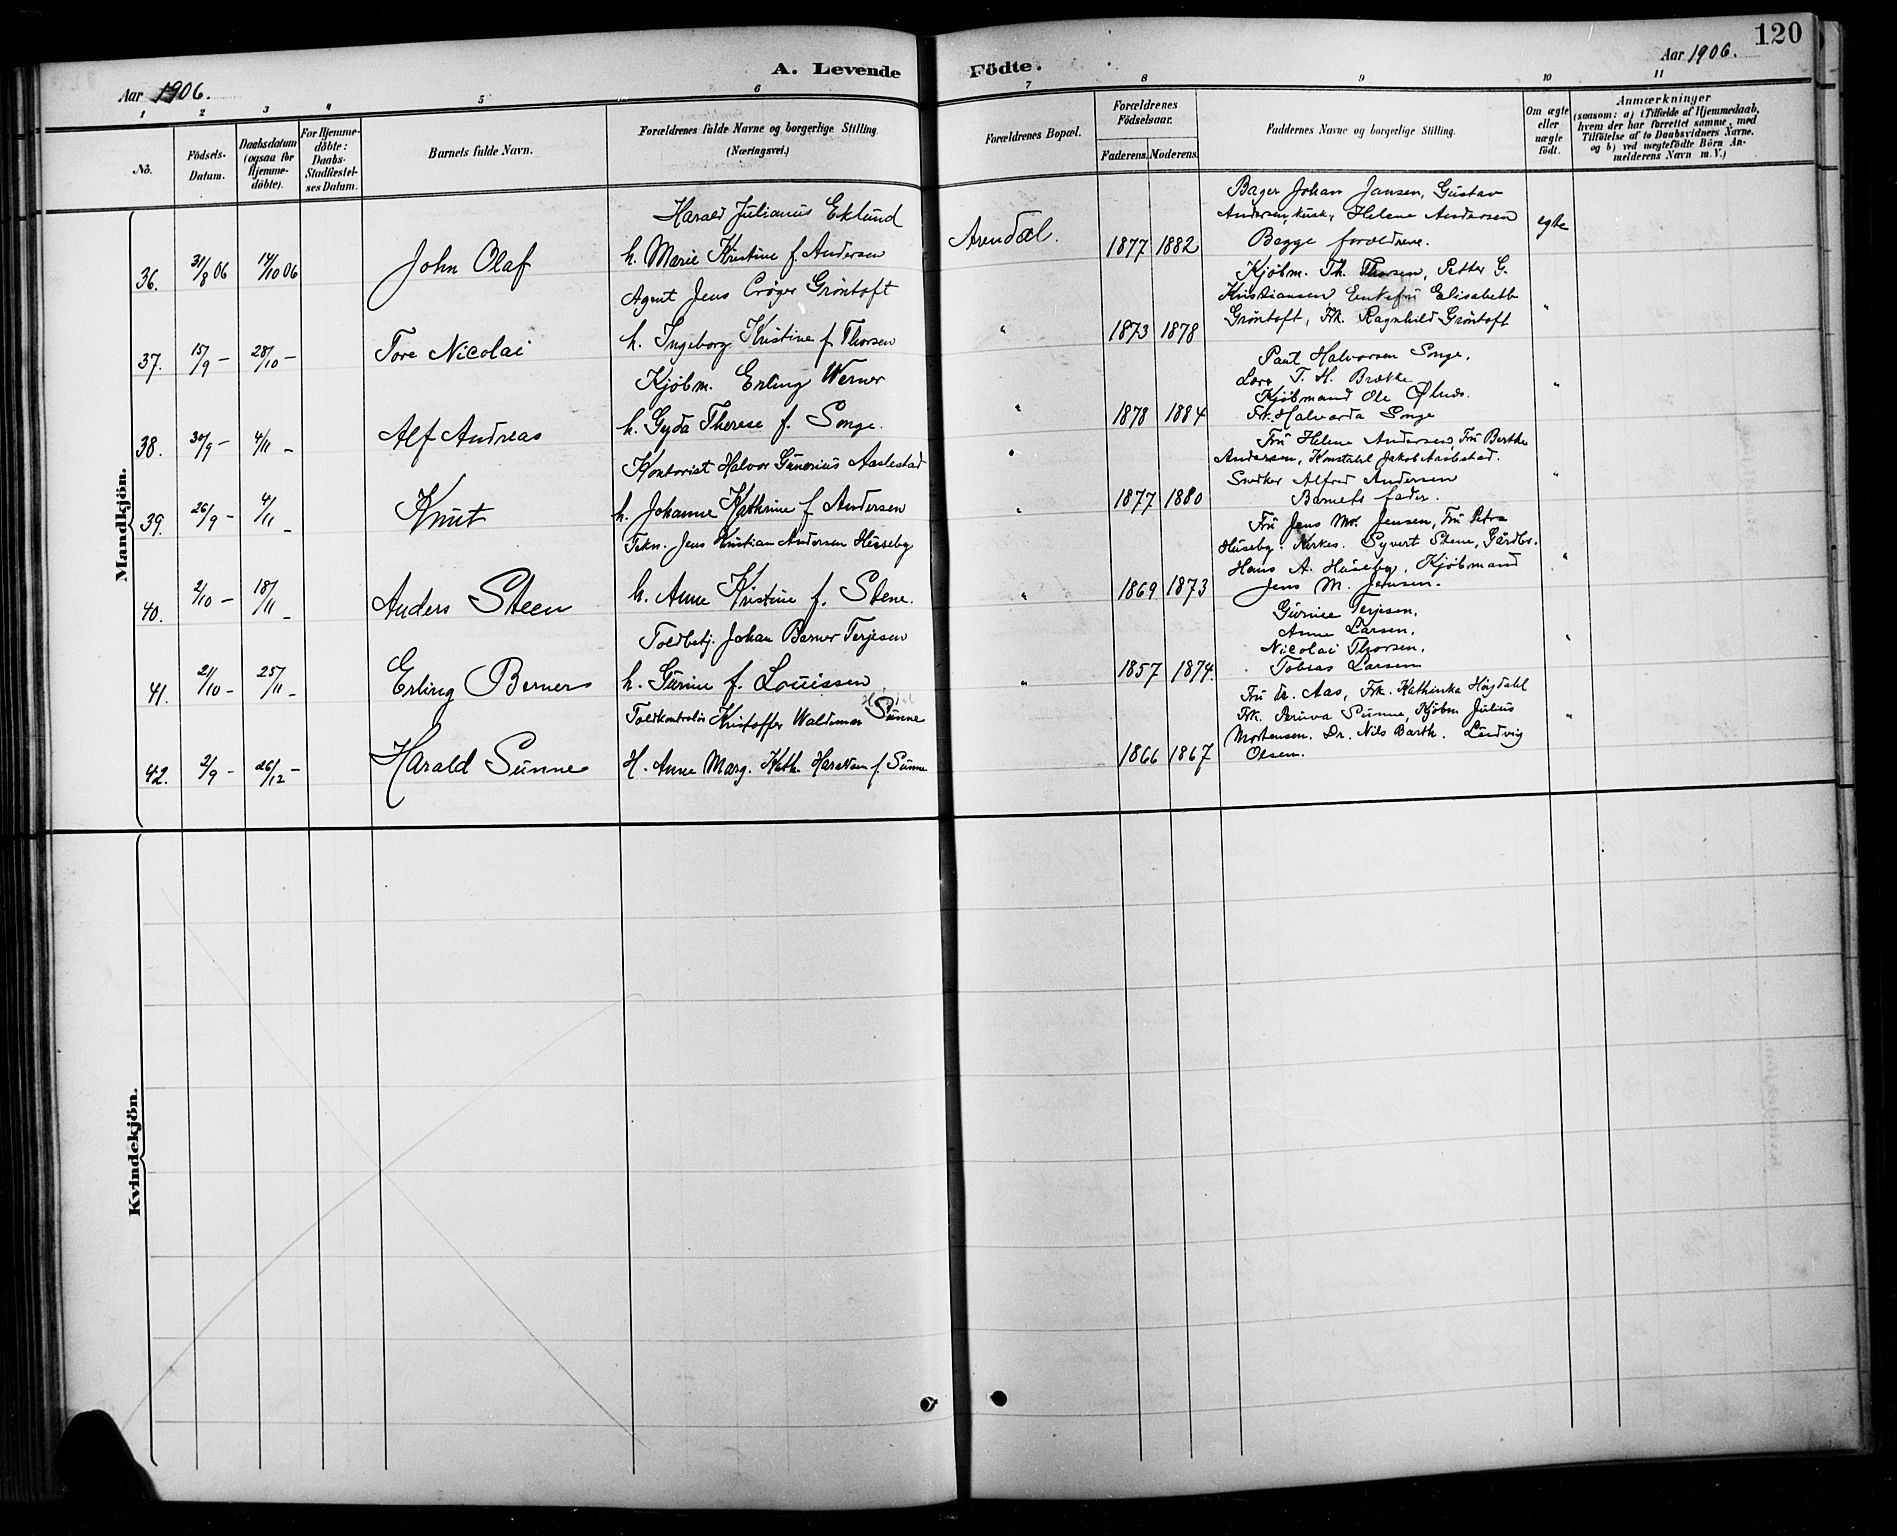 120
Aar 1906.
A. Levende Födte.
Aar 1906.
1 2 3 4 5 6 7 8 9 10 11
No.
Födsels-Datum.
Daabsdatum (ogsaa for Hjemme-döbte).
For Hjemme-döbte: Daabs-Stadfæstel-ses Datum.
Barnets fulde Navn.
Forældrenes fulde Navne og borgerlige Stilling. (Næringsvei.)
Forældrenes Bopæl.
Forældrenes Födselsaar.
Faderens. Moderens.
Faddernes Navne og borgerlige Stilling.
Om ægte eller uægte födt.
Anmærkninger
(saasom: a) i Tilfælde af Hjemmedaab, hvem der har forrettet samme, med Tilföielse af to Daabsvidners Navne. og b) ved uægtefödte Börn An-melderens Navn m. V.)
Mandkjön.
36. 31/8 06 14/10 06 John Olaf
Harald Julianus Eklund
h. Marie Kristine f. Andersen
Arendal. 1877 1882
Bager Johan Jansen, Gustav
Andersen, kusk, Helene Andersen
Begge forældrene.
egte
37. 15/9 – 28/10 – Tore Nicolai
Agent Jens Crøger Gröntoft
h. Ingeborg Kristine f. Thorsen
" 1873 1878
Kjøbm. Th. Thorsen, Petter G.
Kristiansen, Enkefru Elisabeth
Gröntoft, Frk. Ragnhild Gröntoft
"
38. 30/9 – 4/11 – Alf Andreas
Kjöbm. Erling Werner
h. Gyda Therese f. Songe.
" 1878 1884
Paul Halvorsen Songe,
T. H. Brække
Kjöbmand Ole
Frk. Halvarda Songe
"
39. 26/9 – 4/11 – Knut
Kontorist Halvor Gunerius Aaslestad
h. Johanne Kathrine f. Andersen
" 1877 1880
Fru Helene Andersen, Fru Berthe
Andersen, Konstabel Jakob Aaslestad.
Snedker Alfred Andersen
Barnets fader.
"
40. 2/10 – 18/11 – Anders Steen
Tekn. Jens Kristian Andersen Hüseby
h. Anne Kristine f. Stene.
" 1869 1873
Fru Jens M. Jensen, Fru Petra
Huseby. Kirkes. Syvert Stene, Gårdbr.
Hans A. Huseby. Kjöbmand
Jens M. Jensen.
"
41. 21/10 – 25/11 – Erling Berner
Toldbetj. Johan Berner Terjesen
h. Gurine f. Louissen
" 1857 1874.
Gurine Terjesen.
Anne Larsen.
Nicolai Thorsen.
Tobias Larsen
"
42. 2/9 – 26/12 – Harald Sunne
Toldkontrolör Kristoffer Waldemar Sunne
H. Anne Marg. Kath. f. Sunne
1866 1867
Fru Dr. Aas, Frk. Kathinka Høydahl
Frk. Sunne, Kjöbm. Julius
Mortensen. Dr. Nils Barth. Ludvig
Olsen.
"
Kvindekjön.